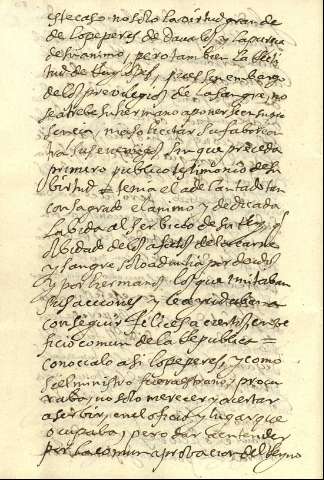 este caso no solo la virtud grande
de lope peres de davalos y la pureza
de su animo, pero tambien la Reli
tud de Rey, pues sin embargo
de los previlegios de la sangre, no
se atrebe su hermano a poner en su pre
sencia, ni a solicitar su fabor con
tra sus enemigos, sin que preceda
primero publico testimonio de su
birtud tema el adelantado tan
consagrado el animo y dedicada
la bida al serbicio de su Rey, q
olbidado de los afectos de la carne
y sangre, solo admitia por deudos
y por hermanos los que imitaban
sus acciones y le aiudaban a
conseguir felices aciertos, en bene
ficio comun de la Republica =
conocialo asi lope peres, y como
si el ministro fuera estraño, procu
raba, no solo merecer y acertar
a serbir, en el oficio y lugar que
ocupaba, pero dar a entender
por la comun aprobacion del Reyno